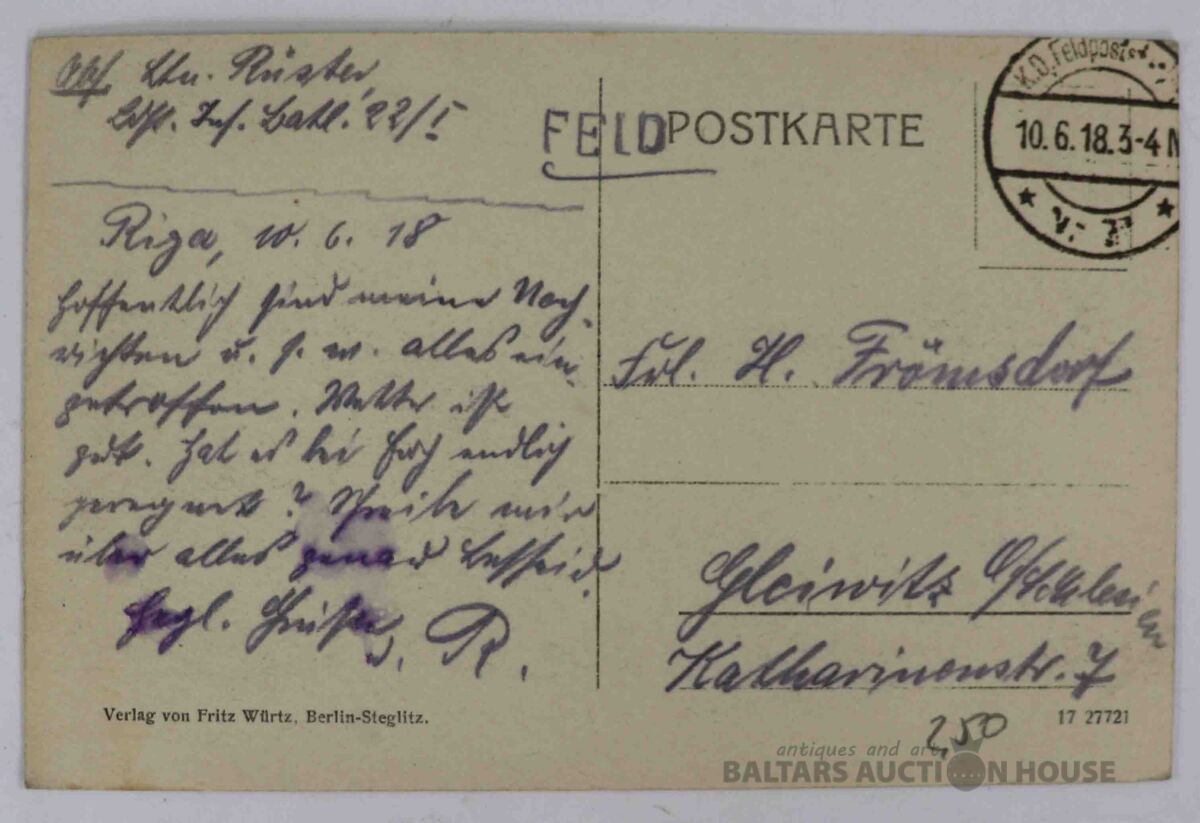 Abs. Ltn. Rüster,
Ldst. Inf. Batl. 22/I
FELDPOSTKARTE
K.D. Feldpost
10.6.18.3-4 N
Riga, 10. 6. 18
Hoffentlich sind meine Nach-
richten u. s. w. alles ein-
getroffen. Wetter ist
gut. Hat es bei Euch endlich
geregnet? Schreibe mir
über alles genau Bescheid.
Hrzl. Grüße, R.
Frl. H. Frömsdorf
Gleiwitz O/Schlesien
Katharinenstr. 7
Verlag von Fritz Würtz, Berlin-Steglitz.
17 27721
2,50
antiques and art
BALTARS AUCTION HOUSE